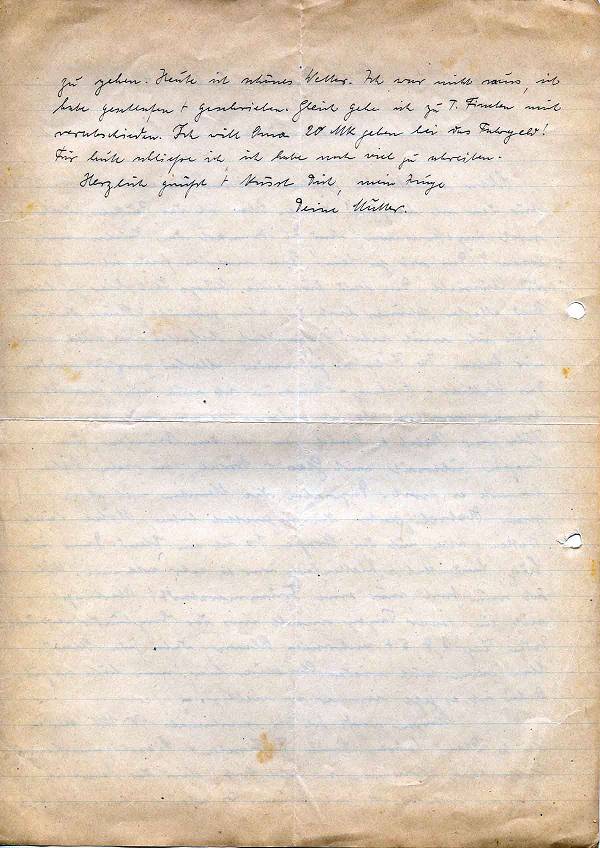 zu gehen. Heute ist schönes Wetter. Ich war nicht raus, ich
habe geschlafen + geschrieben. Gleich gehe ich zu T. mich
verabschieden. Ich will 20 Mk geben bei das Fahrgeld!
Für heute schließe ich, ich habe noch viel zu schreiben.
Herzlich grüßt + küsst Dich, mein Junge
Deine Mutter.